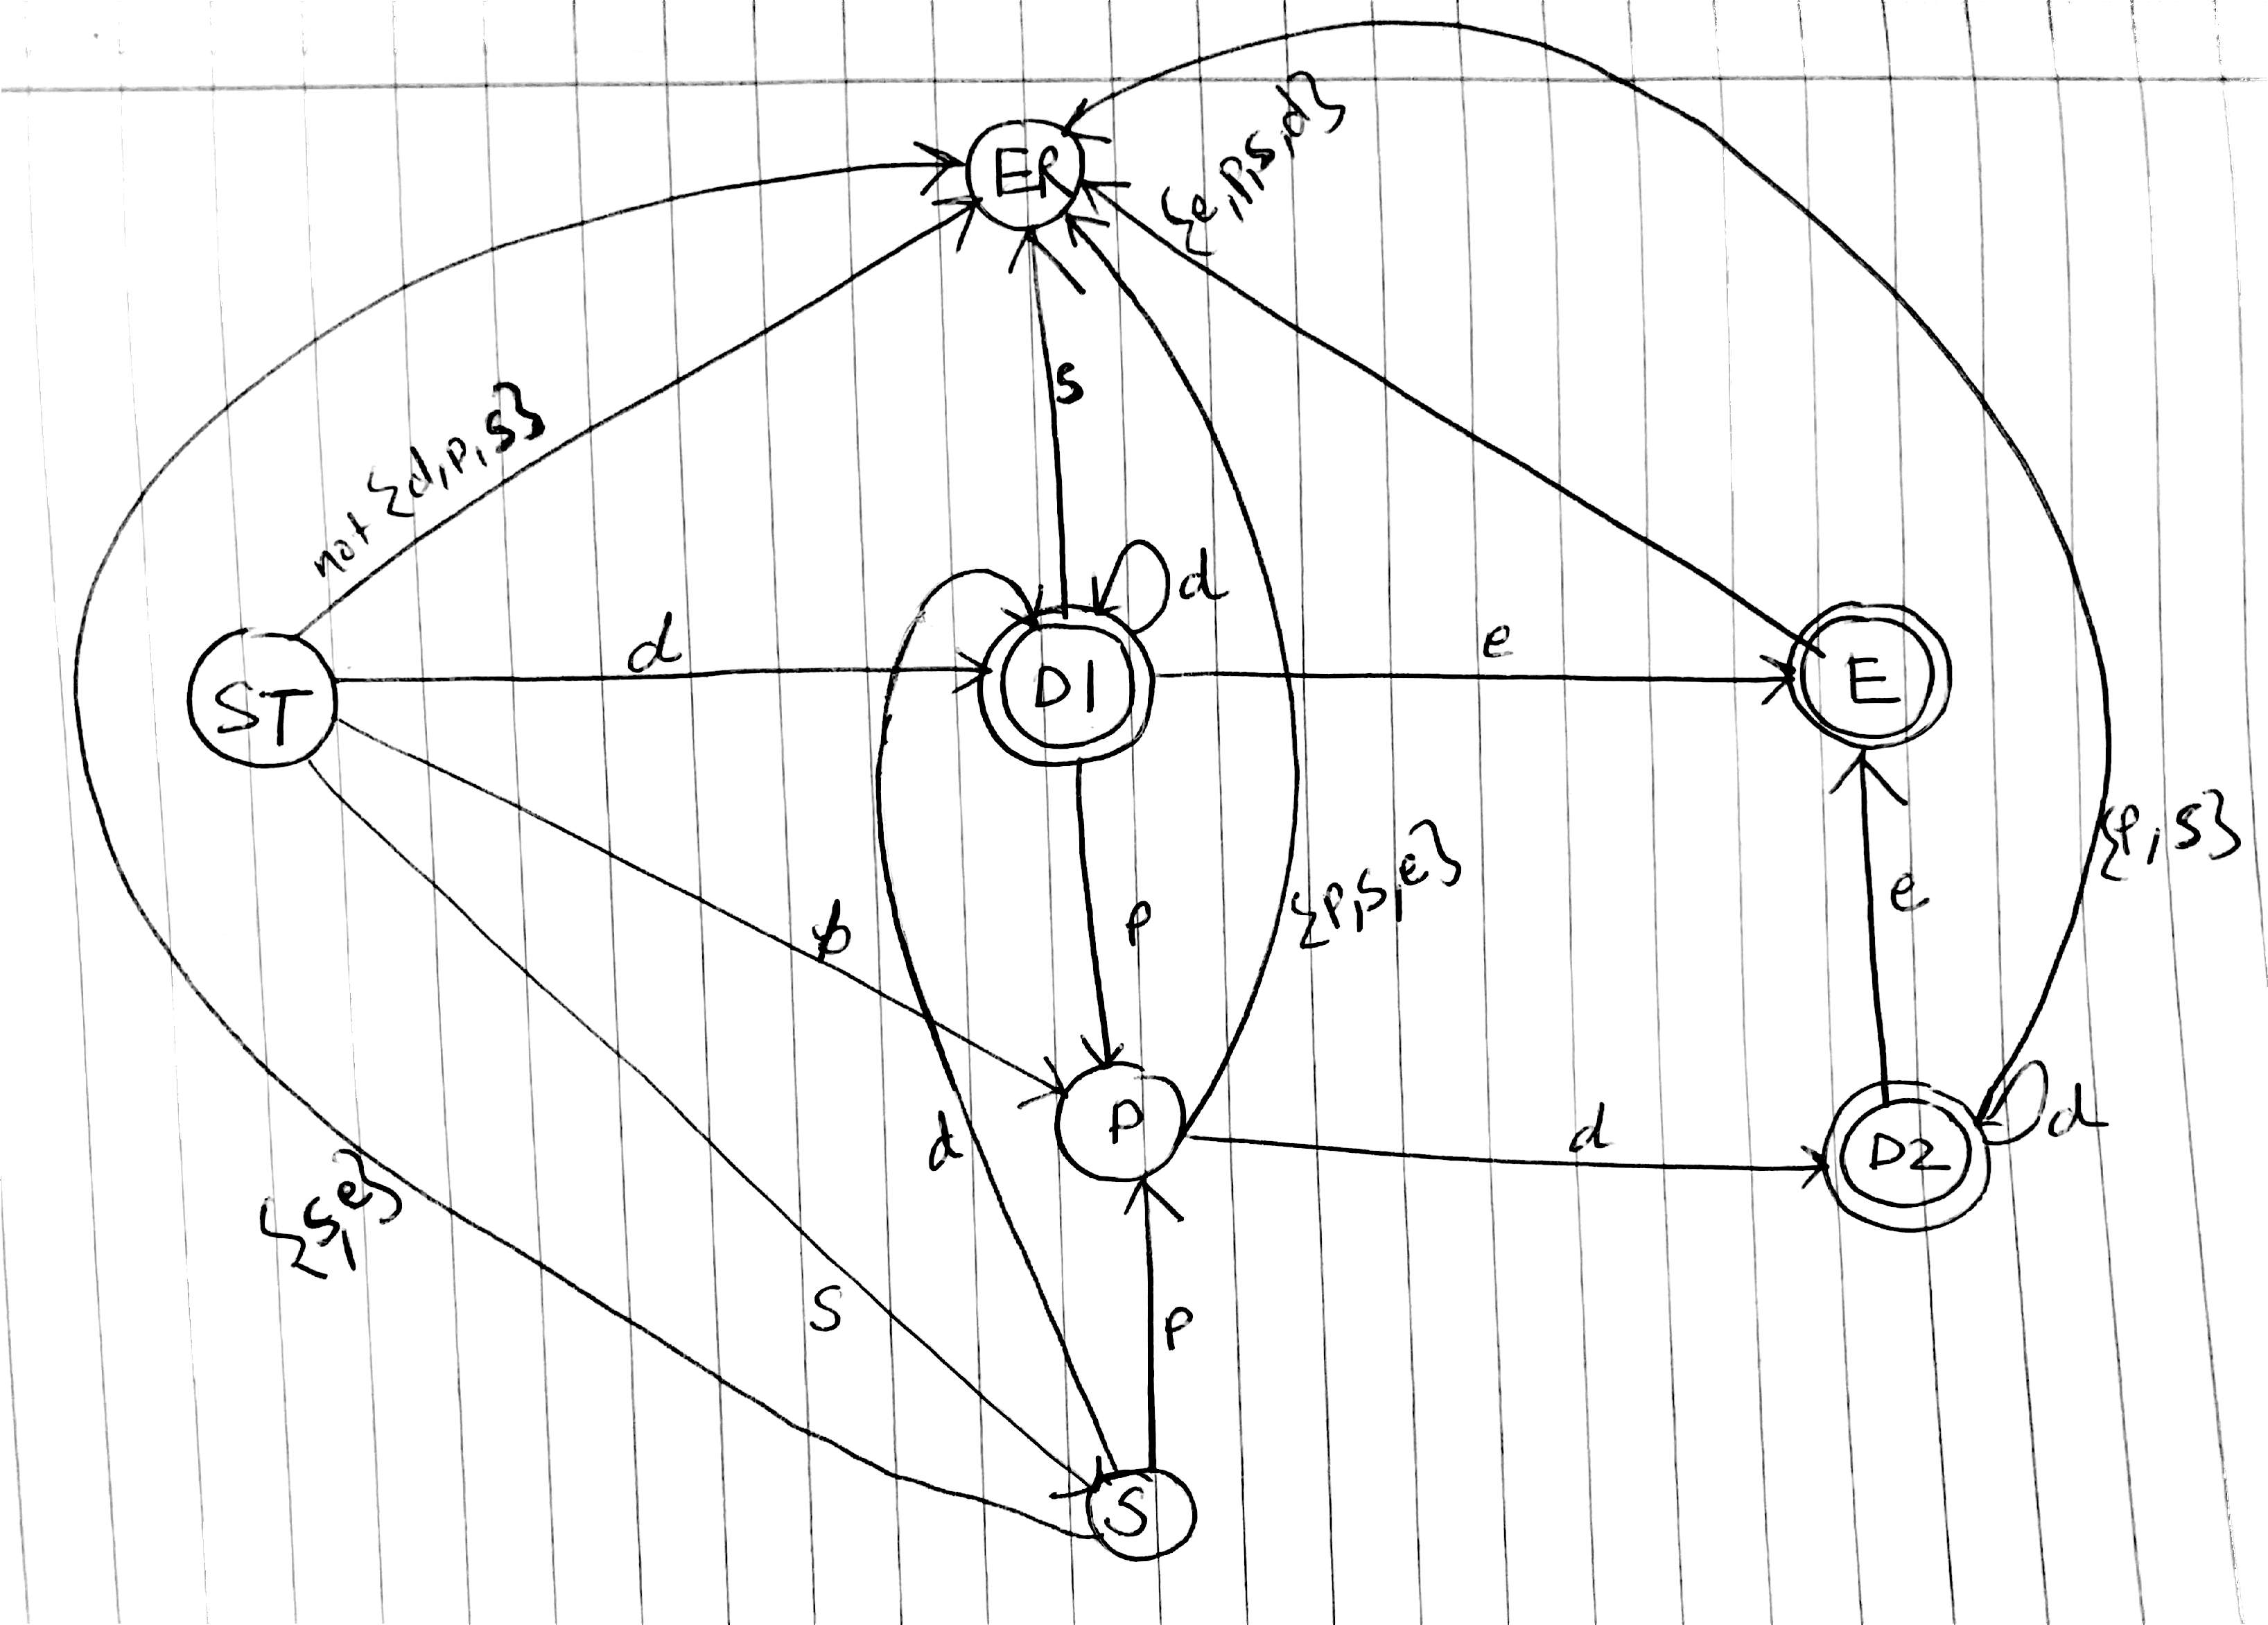 ER
{e,p,s,d}
s
not {d,p,s}
d
d
ST
D1
e
E
{p,s}
p
e
{p,s,e}
p
d
P
d
D2
d
{s,e}
s
p
S